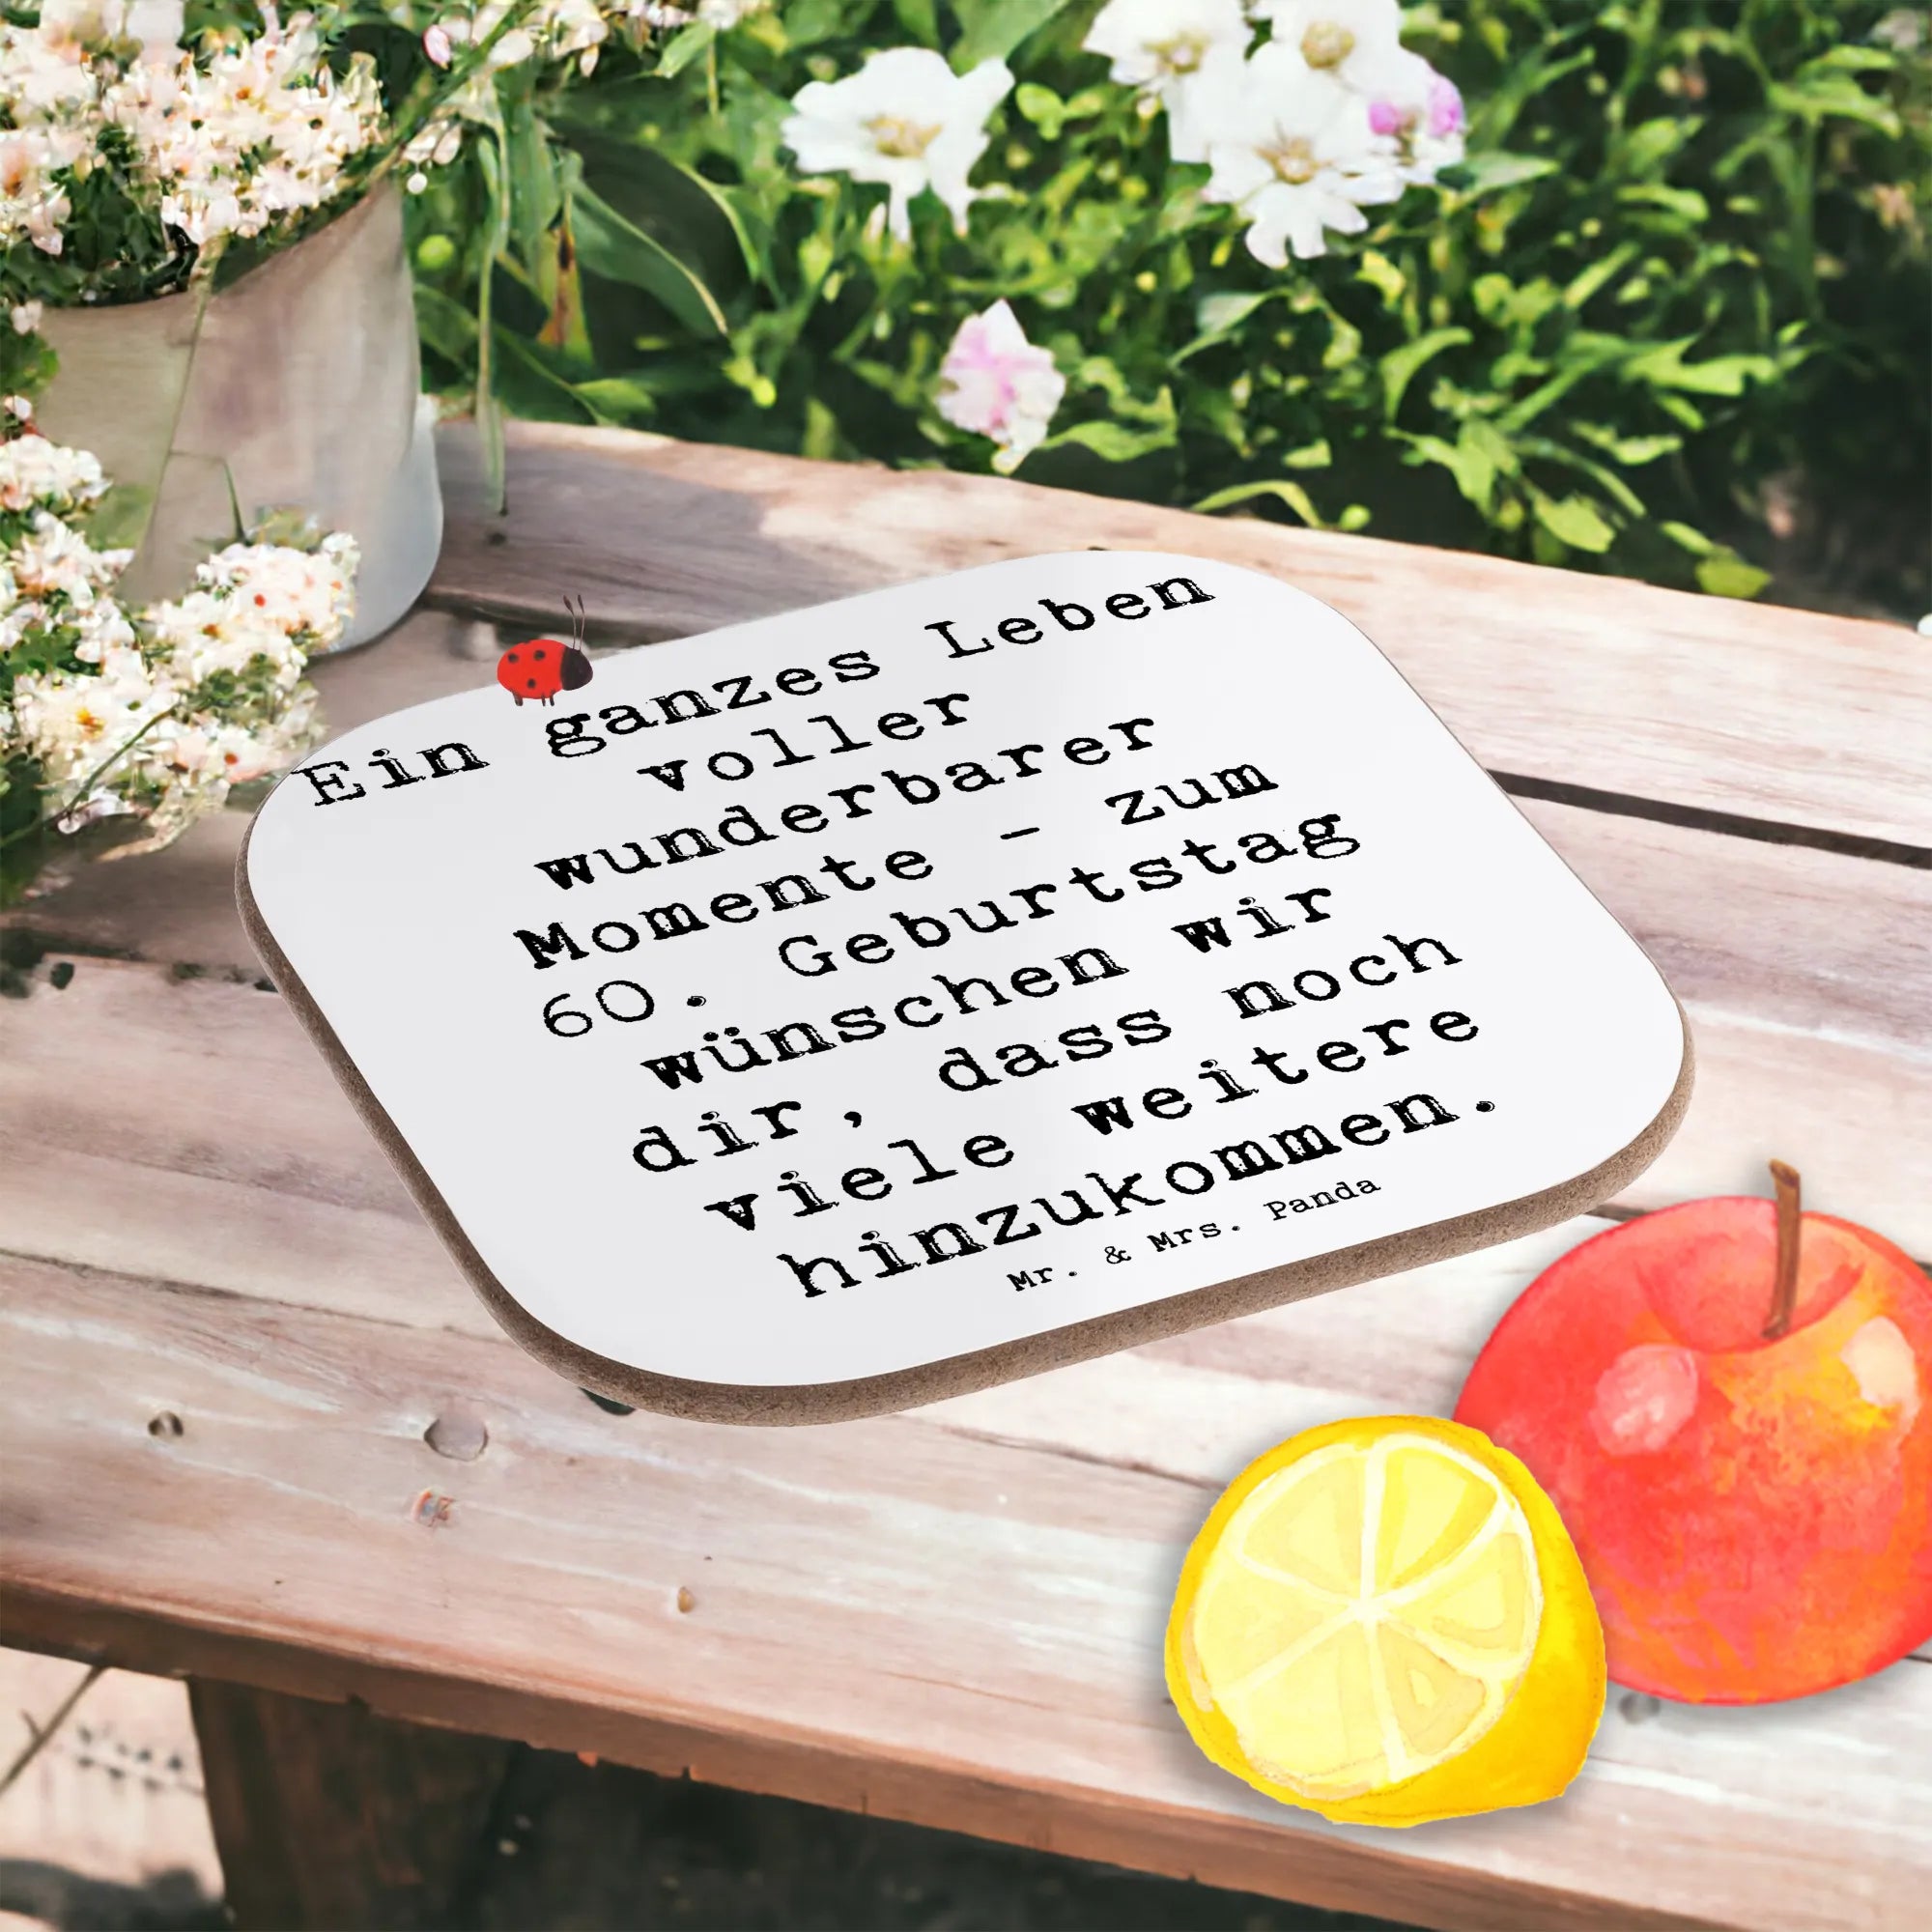 Ein ganzes Leben
voller
wunderbarer
Momente - zum
60. Geburtstag
wünschen wir
dir, dass noch
viele weitere
hinzukommen.
Mr. & Mrs. Panda